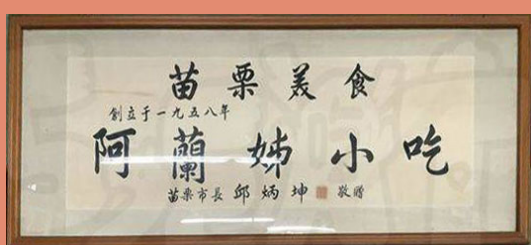 苗栗美食
創立于一九五八年
阿蘭姊小吃
苗栗市長 邱炳坤 敬贈